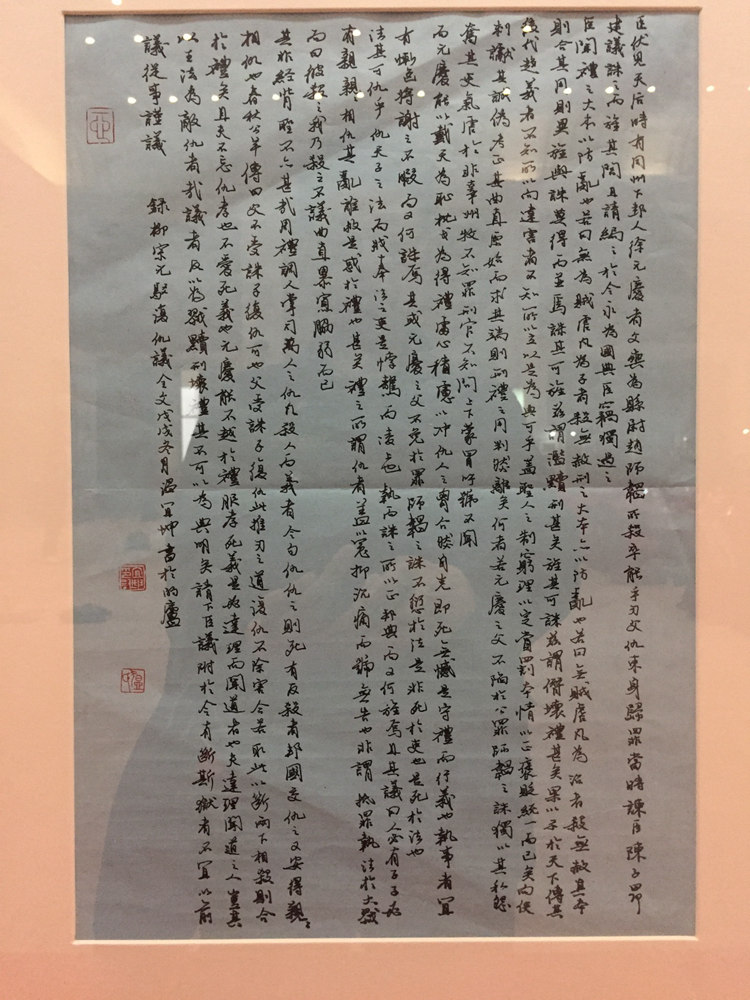 臣伏見天后時有同州下邽人徐元慶者父爽為縣尉趙師韞所殺卒能手刃父仇束身歸罪當時諫臣陳子昂
建議誅之而旌其閭且請編之於令永為國典臣竊獨過之
臣聞禮之大本以防亂也若曰無為賊虐凡為子者殺無赦刑之大本亦以防亂也若曰無賊虐凡為治者殺無赦其本
則合其用則異旌與誅莫得而並焉誅其可旌茲謂濫黷刑甚矣旌其可誅茲謂僭壞禮甚矣果以示於天下傳其
後代趨義者不知所以向違害者不知所以立以是為典可乎蓋聖人之制窮理以定賞罰本情以正褒貶統一而已矣向使
刺讞其誠偽考正其曲直原始而求其端則刑禮之用判然離矣何者若元慶之父不陷於公罪師韞之誅獨以其私怨
奮其吏氣虐於非辜州牧不知罪刑官不知問上下蒙冒籲號不聞
而元慶能以戴天為恥枕戈為得禮處心積慮以沖仇人之胸介然自克即死無憾是守禮而行義也執事者宜
有慚色將謝之不暇而又何誅焉其或元慶之父不免於罪師韞之誅不愆於法是非死於吏也是死於法也
法其可仇乎仇天子之法而戕奉法之吏是悖驁而凌上也執而誅之所以正邦典而又何旌焉且其議曰人必有子子必
有親親親相仇其亂誰救是惑於禮也甚矣禮之所謂仇者蓋以冤抑沉痛而號無告也非謂抵罪執法於大戮
而曰彼殺之我乃殺之不議曲直暴寡脅弱而已
其非經背聖不亦甚哉周禮調人掌司萬人之仇凡殺人而義者令勿仇仇之則死有反殺者邦國交仇之又安得親親
相仇也春秋公羊傳曰父不受誅子復仇可也父受誅子復仇此推刃之道復仇不除害今若取此以斷兩下相殺則合
於禮矣且夫不忘仇孝也不愛死義也元慶能不越於禮服孝死義是必達理而聞道者也夫達理聞道之人豈其
以王法為敵仇者哉議者反以為戮黷刑壞禮其不可以為典明矣請下臣議附於令有斷斯獄者不宜以前
議從事謹議
錄柳宗元駁復仇議全文戊戌冬月溫宜坤書於